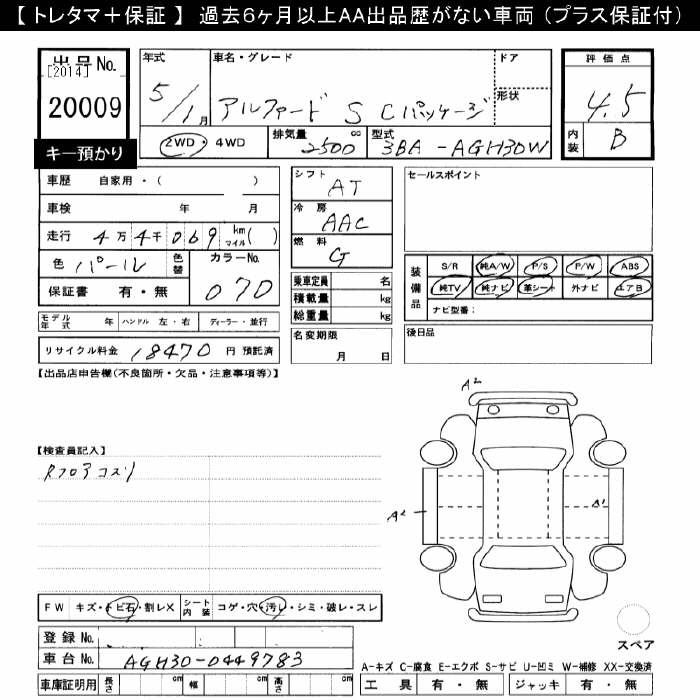 【 トレタマ＋保証 】 過去6ヶ月以上AA出品歴がない車両（プラス保証付）
出品No.
[2014]
20009
キー預かり
年式
5/1月
車名・グレード
アルファード S Cパッケージ
ドア
形状
2WD・4WD
排気量 cc
2500
型式
3BA-AGH30W
評価点
4.5
内装 B
車歴 自家用・( )
車検 年 月
走行 4万4千069 km マイル( )
色 パール 色替 カラーNo.
070
保証書 有・無
シフト
AT
冷房
AAC
燃料
G
乗車定員 名
積載量 kg
総重量 kg
セールスポイント
装備品 S/R 純A/W P/S P/W ABS
純TV 純ナビ 革シート 外ナビ エアB
ナビ型番：
モデル年式 年 ハンドル 左・右 ディーラー・並行
名変期限
月 日
後日品
リサイクル料金 18470 円 預託済
【出品店申告欄(不良箇所・欠品・注意事項等)】
A2
【検査員記入】
Rフロアコスリ
A2
A1
FW キズ・トビ石・割レX シート内装 コゲ・穴・汚レ・シミ・破レ・スレ
登録 No.
車台 No. AGH30-0449783
スペア
A-キズ C-腐食 E-エクボ S-サビ U-凹ミ W-補修 XX-交換済
車庫証明用 長さ cm 幅 cm 高さ cm
工具 有・無 ジャッキ 有・無